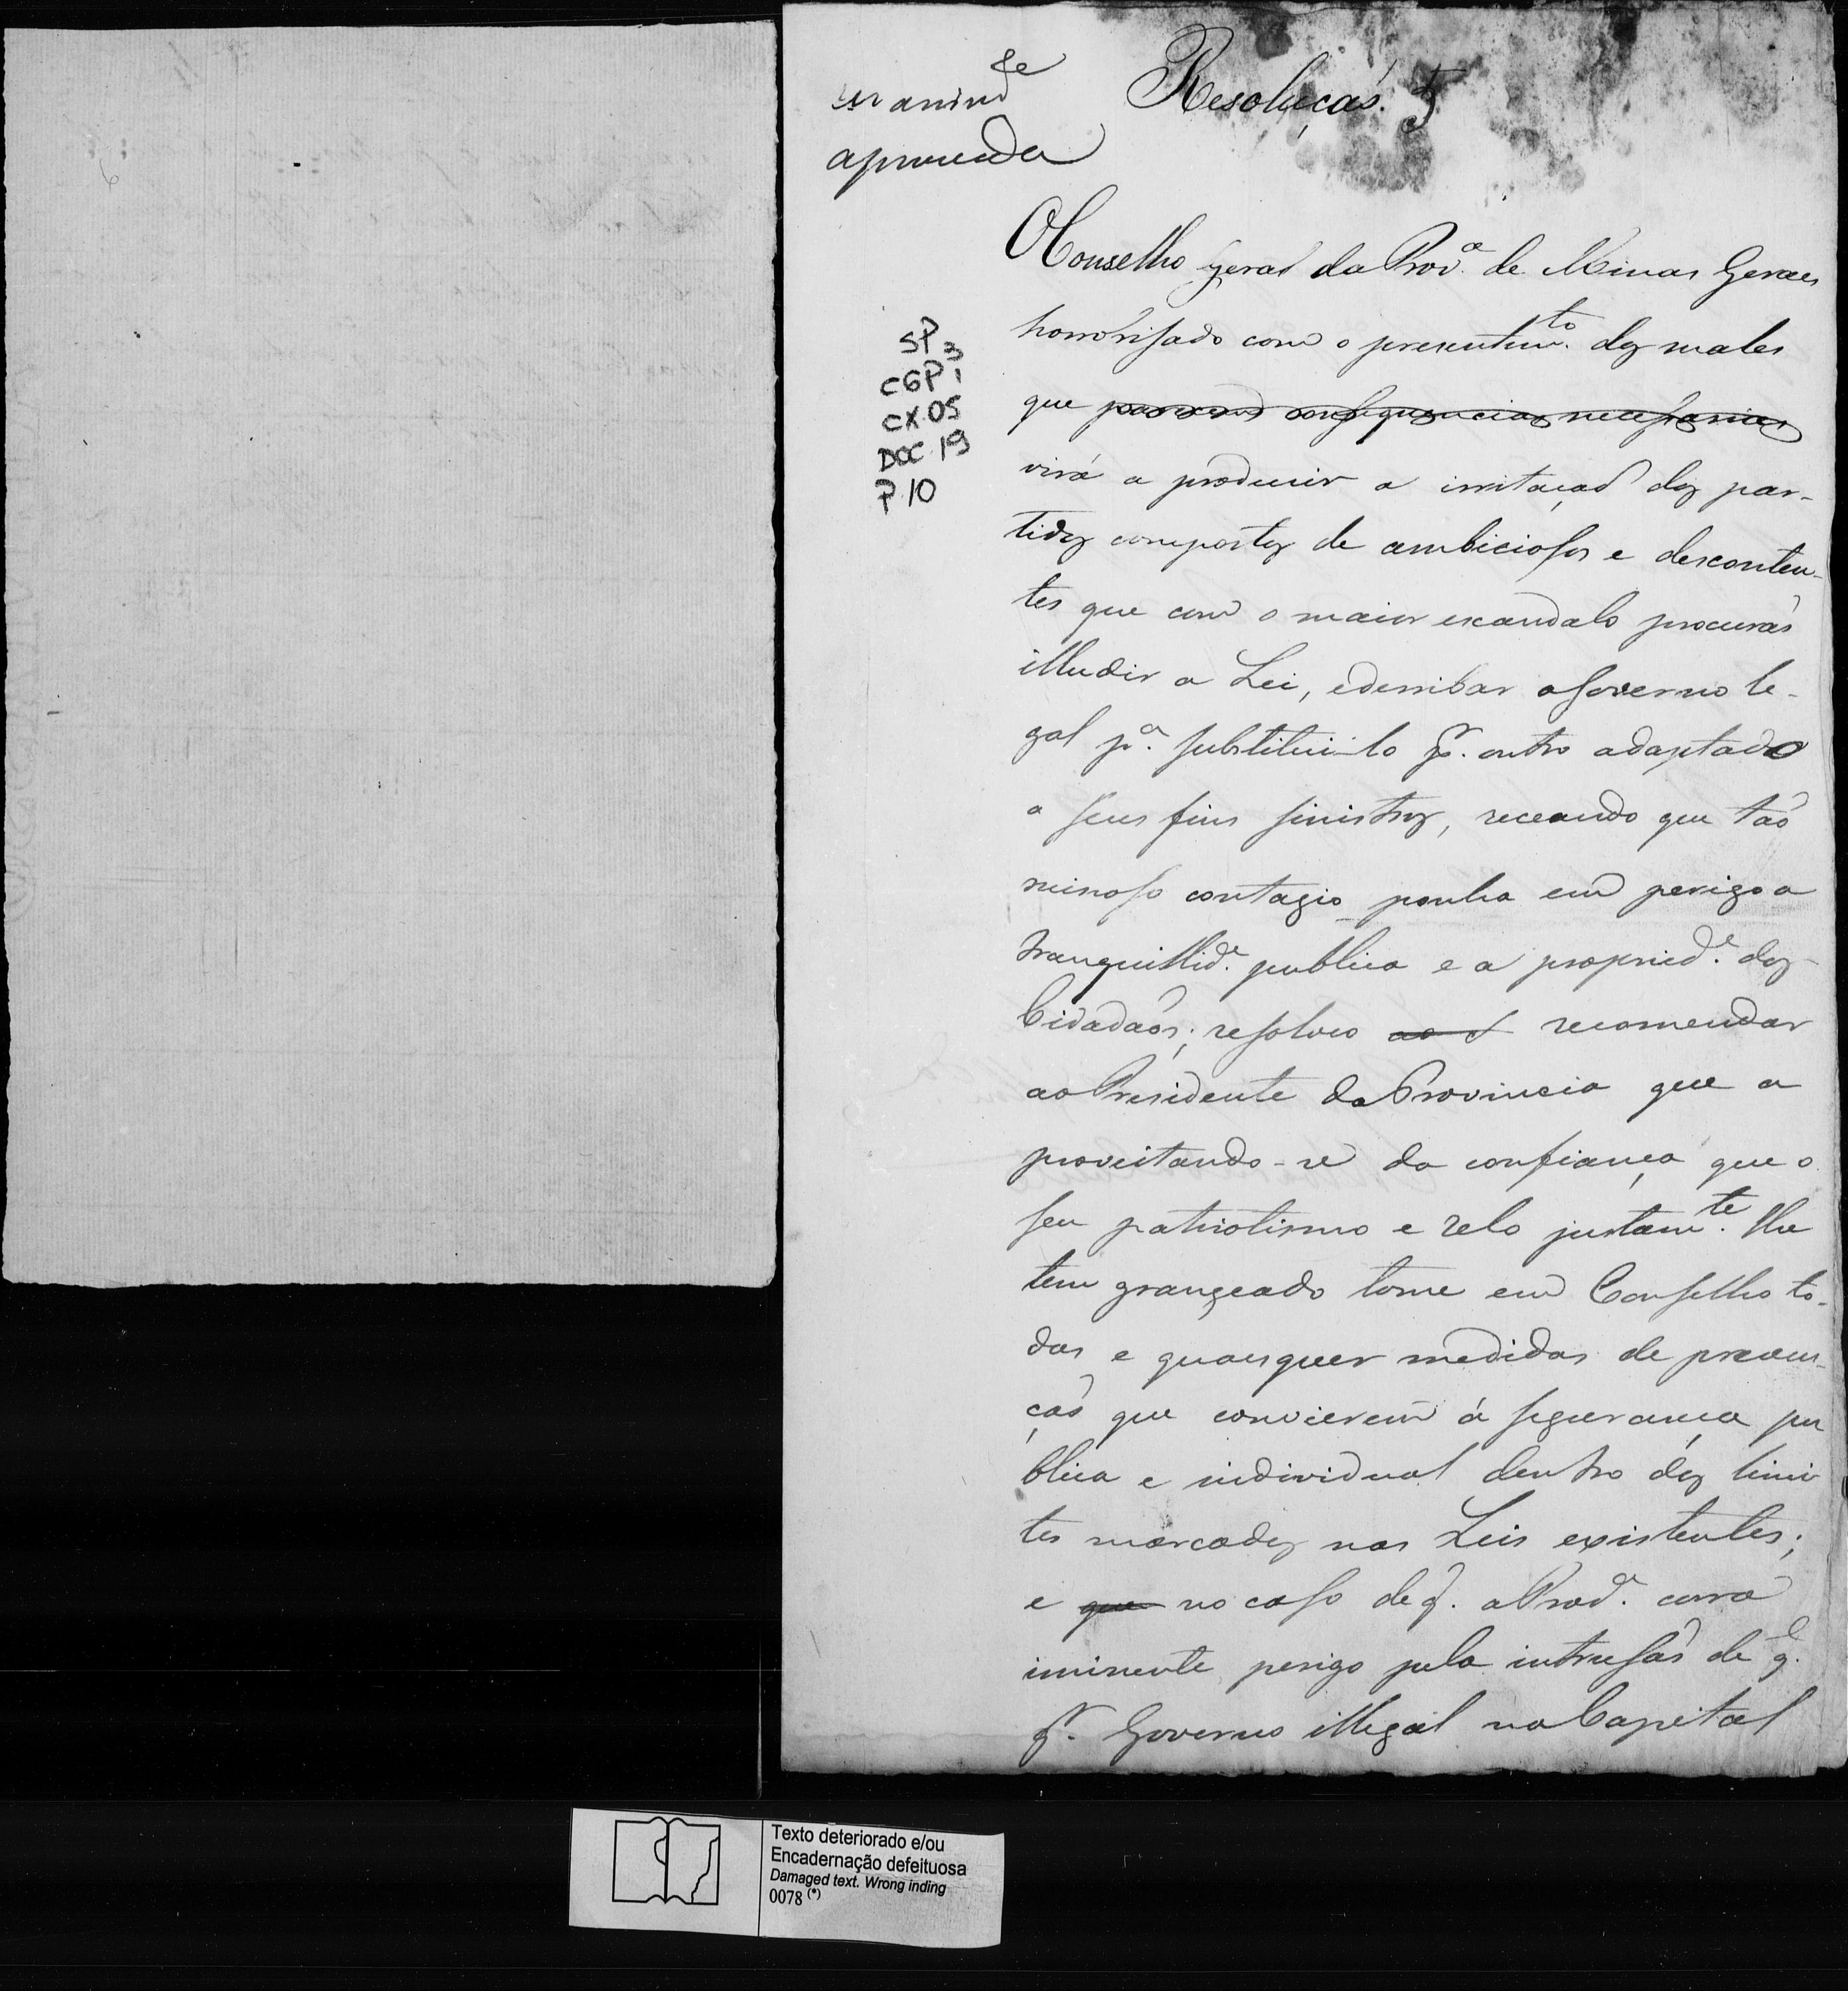 unanimde
approvada
Resoluçaõ. 5
O Conselho Geral da Prova. de Minas Geraes
horrorisado com o presentimto. dos males
que consequencias necessarias
virá a produzir a irritaçaõ dos par-
tidos compostos de ambiciosos e desconten-
tes que com o maior escandalo procuraõ
illudir a Lei, e derribar o Governo le-
gal pa. substitui-lo pr. outro adaptado
a seus fins sinistros, receando que taõ
ruinoso contagio ponha em perigo a
tranquillide. publica e a propriede. dos
Cidadaõs; resolveo recomendar
ao Presidente da Provincia que a
proveitando-se da confiança que o
seu patriotismo e zelo justamte. lhe
tem grangeado tome em Conselho to-
das e quaesquer medidas de preven-
çaõ que convierem á segurança pu
blica e individual dentro dos limi
tes marcados nas Leis existentes;
e que no caso de q. a Prova. corra
iminente perigo pela intrusaõ de ql.
qr. Governo illegal na Capital
SP 3
CGP 1
CX. 05
DOC. 19
P. 10
Texto deteriorado e/ou
Encadernação defeituosa
Damaged text. Wrong inding
0078 (*)